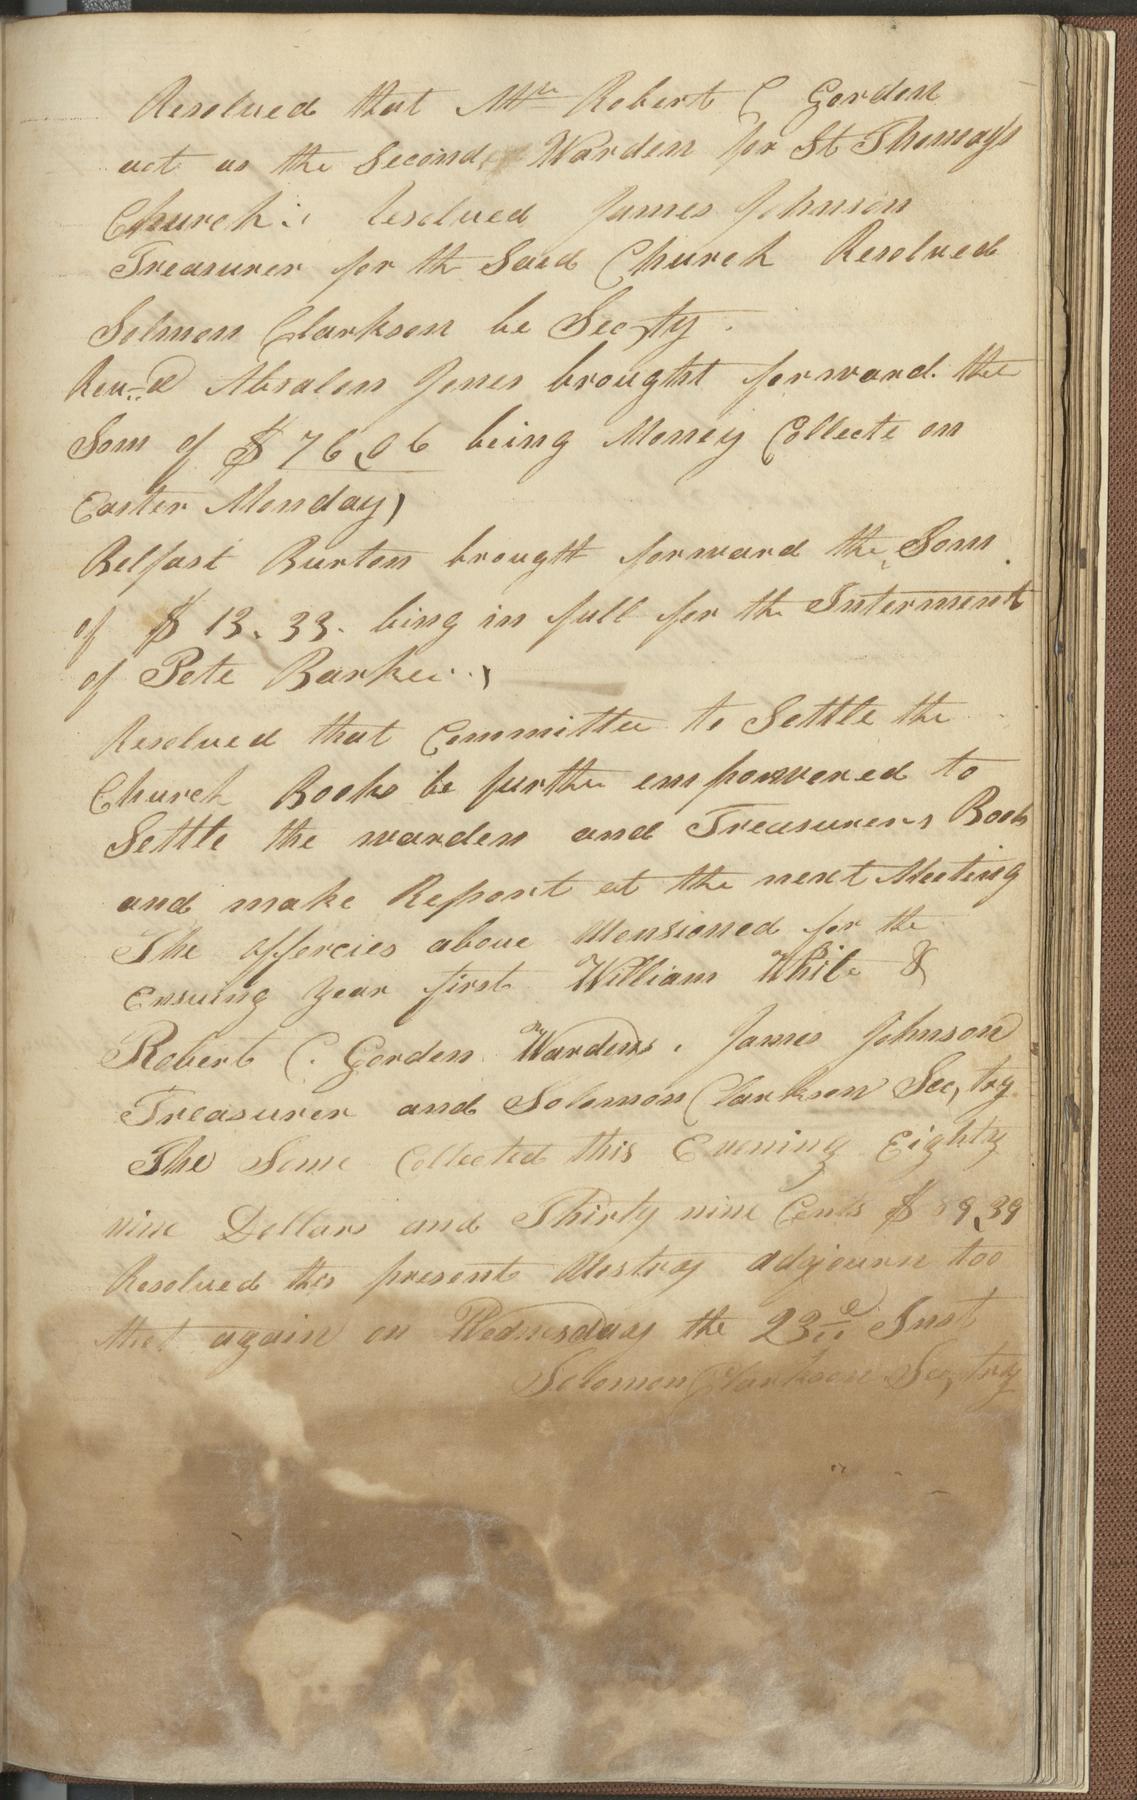 Resolved that Mr Robert C Gorden
act as the Second Warden for St Thomas's
Church. resolved James Johnson
Treasurer for th Said Church Resolved
Solmon Clarkson be Sec,ty.
Rev.d Absalom Jones brought forward the
Som of $76,06 being Money Collecte on
Easter Monday)
Belfast Burton brought forward the Som
of $13.33. being in full for the Interment
of Pete Barker.
Resolved that Committee to Settle the
Church Books be further empowered to
Settle the warden and Treasurers Book
and make Report at the next Meeting
The offercies above Mensioned for the
Ensuing year first William White &
Robert C. Gorden Wardens. James Johnson
Treasurer and Solomon Clarkson Sec,try
The Some Collected this Evening Eighty
nine Dollars and Thirty nine Cents $89,39
Resolved this present Vestray adjourn too
Meet again on Wednesday the 23d Inst
Solomon Clarkson Sec,try